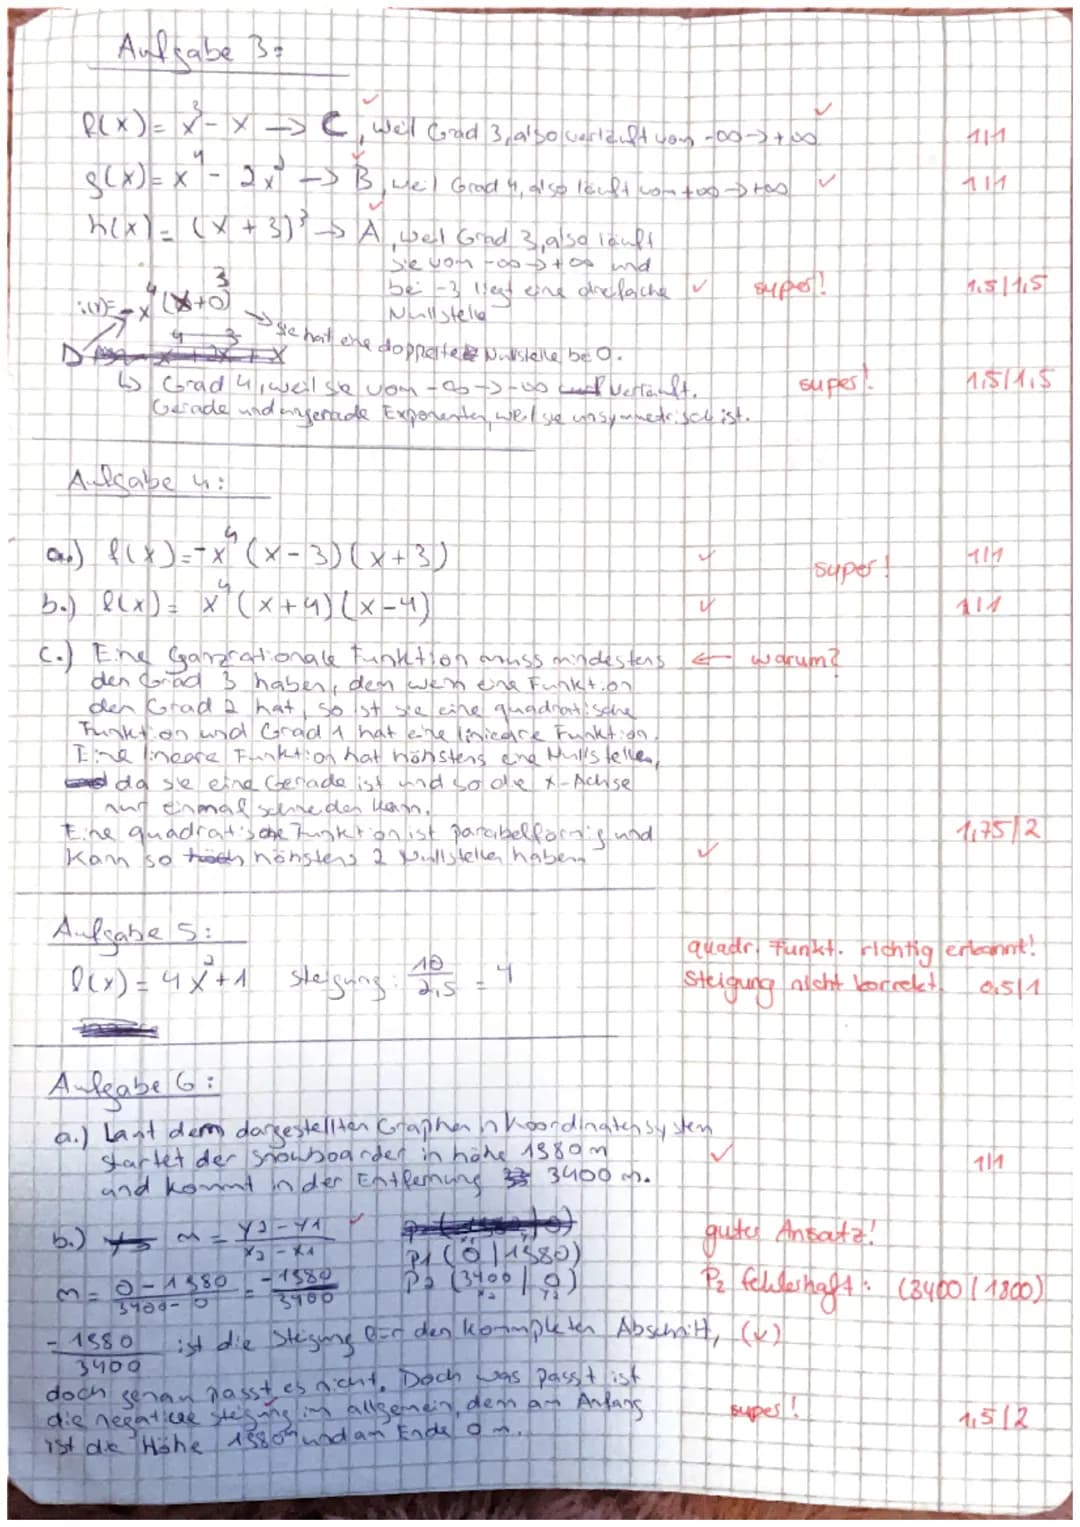 Aufgabe 3:
f(x) = x³ - x → C, weil Grad 3, also verläuft von -∞ → +∞ ✓ 1/1
g(x) = x⁴ - 2x² → B, weil Grad 4, also läuft von +∞ → +∞ ✓ 1/1
h(x) = (x + 3)³ → A, weil Grad 3, also läuft
sie von -∞ → +∞ und
bei -3 liegt eine dreifache ✓ super! 1,5/1,5
Nullstelle
i(x) = -x⁴ (x³+0)
→ sie hat eine doppelte Nullstelle bei 0.
D
↳ Grad 4, weil sie vom -∞ → -∞ verläuft. super! 1,5/1,5
Gerade und ungerade Exponenten, weil sie unsymmetrisch ist.
Aufgabe 4:
a.) f(x) = -x⁴ (x - 3) (x + 3) ✓ super! 1/1
b.) f(x) = x⁴ (x + 4) (x - 4) ✓ 1/1
c.) Eine Ganzrationale Funktion muss mindestens ← warum?
den Grad 3 haben, denn wenn eine Funktion
den Grad 2 hat, so ist sie eine quadratische
Funktion und Grad 1 hat eine liniedre Funktion.
Eine lineare Funktion hat hönstens eine Nullstellen,
da sie eine Gerade ist und so die x-Achse
nur einmal schneiden kann.
Eine quadratische Funktion ist parabelförmig und 1,75/2
kann so hönstens 2 Nullstellen haben ✓
Aufgabe 5:
quadr. Funkt. richtig erkannt!
f(x) = 4x² + 1 Steigung: 10/2,5 = 4 Steigung nicht korrekt. 0,5/1
Aufgabe 6:
a.) Laut dem dargestellten Graphen in Koordinatensystem
startet der Snowboarder in höhe 1980m ✓ 1/1
und kommt in der Entfernung 3400 m.
b.) m = y2-y1 / x2-x1 ✓ guter Ansatz!
P1 (0 | 1980)
m = 0-1980 / 3400-0 = -1980 / 3400 P2 (3400 | 0) P₂ fehlerhaft: (3400 | 1800)
-1980 / 3400 ist die Steigung für den kommpletten Abschnitt, (✓)
doch genau passt es nicht. Doch was passt ist
die negative Steigung im allgemein, denn am Anfang super! 1,5/2
ist die Höhe 1980m und am Ende 0 m.